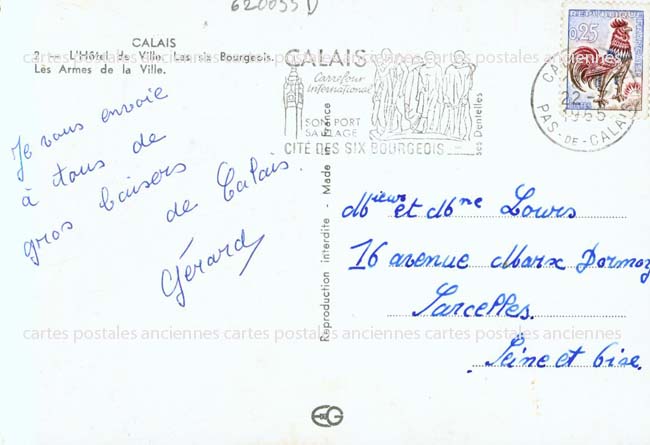 620055 D
CALAIS
2 — L'Hôtel de Ville. Les six Bourgeois.
Les Armes de la Ville.
Je vous envoie
à tous de
gros baisers
de Calais.
Gérard
Reproduction interdite - Made in France
CALAIS
Carrefour
international
SON PORT
SA PLAGE
ses Dentelles
CITÉ DES SIX BOURGEOIS
0,25
22
1965
PAS-DE-CALAIS
Mieur et Mme Louis
16 avenue Marx Dormoy
Sarcelles.
Seine et Oise.
cartes postales anciennes cartes postales anciennes cartes postales anciennes
cartes postales anciennes cartes postales anciennes cartes postales anciennes
EG